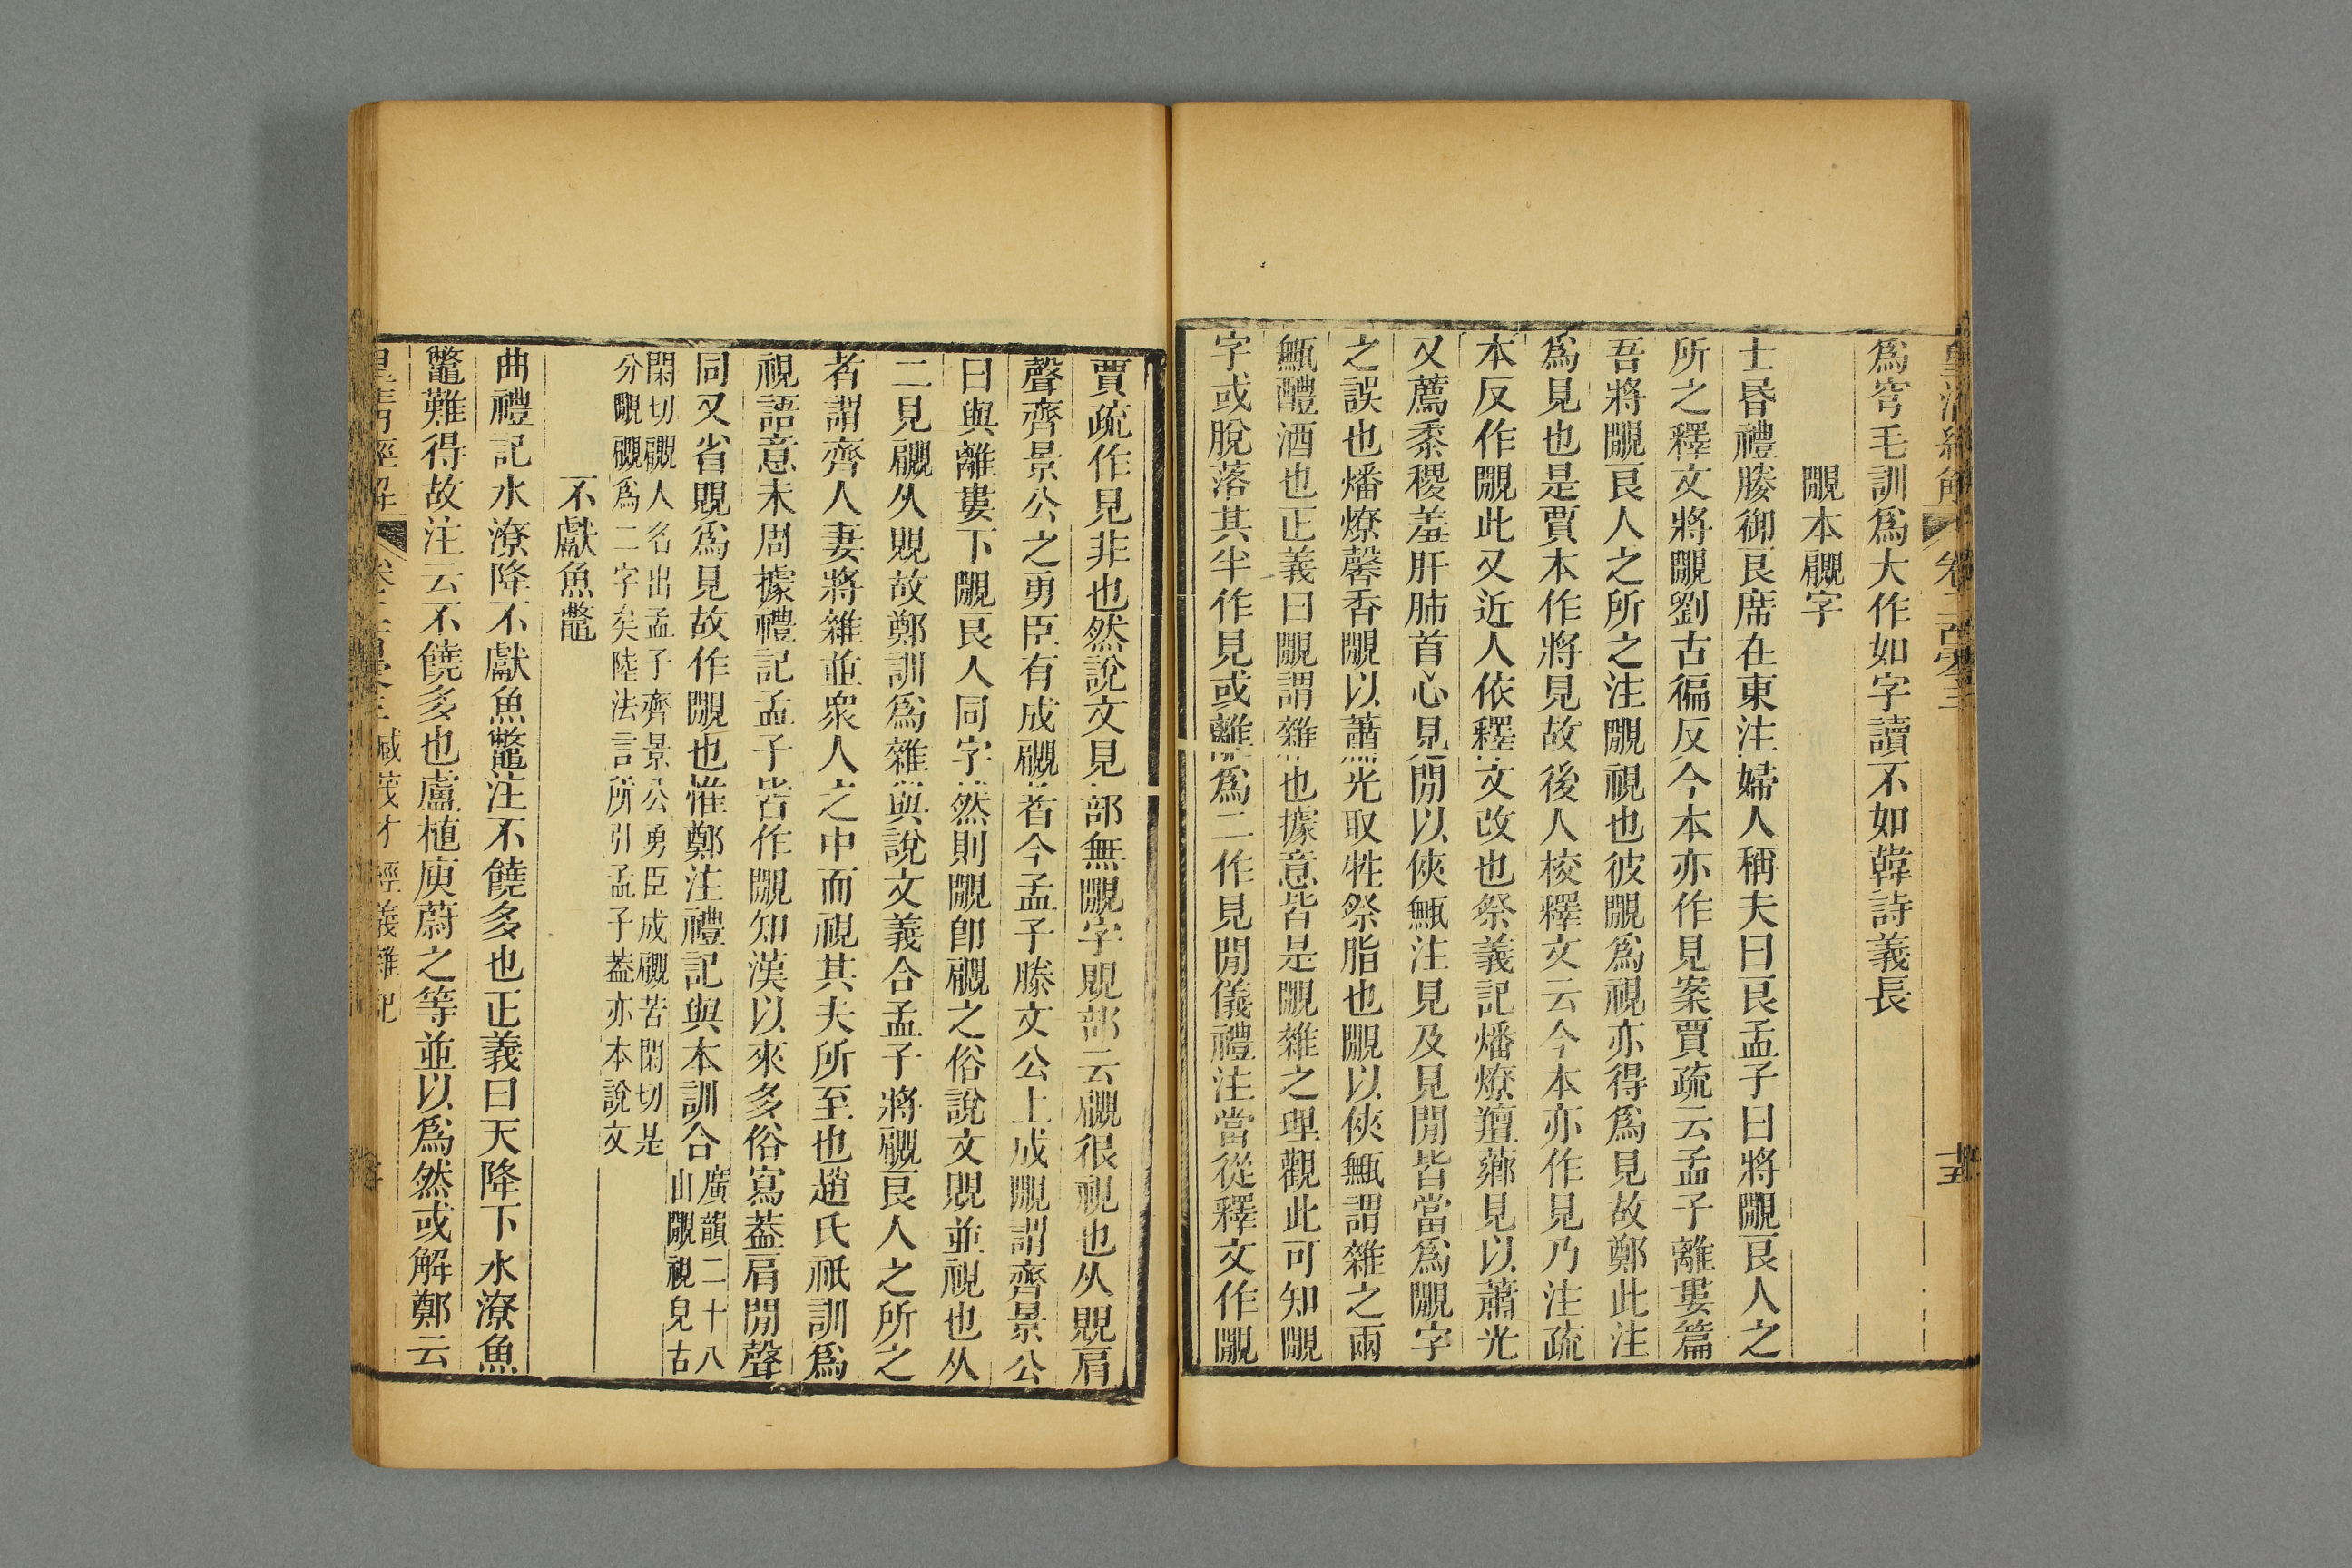 爲穹毛訓爲大作如字讀不如韓詩義長
覸本覵字
士昬禮媵御良席在東注婦人稱夫曰良孟子曰將覸良人之
所之釋文將覸劉古徧反今本亦作見案賈疏云孟子離婁篇
吾將覸良人之所之注覸視也彼覸爲視亦得爲見故鄭此注
爲見也是賈本作將見故後人校釋文云今本亦作見乃注疏
本反作覸此又近人依釋文改也祭義記燔燎羶薌見以蕭光
又薦黍稷羞肝肺首心見閒以俠甒注見及見閒皆當爲覸字
之誤也燔燎馨香覸以蕭光取牲祭脂也覸以俠甒謂雜之兩
甒醴酒也正義曰覸謂雜也據意皆是覸雜之理觀此可知覸
字或脫落其半作見或離爲二作見閒儀禮注當從釋文作覸
賈疏作見非也然說文見部無覸字覞部云覵很視也从覞肩
聲齊景公之勇臣有成覵者今孟子滕文公上成覸謂齊景公
曰與離婁下覸良人同字然則覸卽覵之俗說文覞並視也从
二見覵从覞故鄭訓爲雜與說文義合孟子將覵良人之所之
者謂齊人妻將雜並衆人之中而視其夫所至也趙氏祇訓爲
視語意未周據禮記孟子皆作覸知漢以來多俗寫葢肩閒聲
同又省覞爲見故作覸也惟鄭注禮記與本訓合廣韻二十八
山覸視皃古
閑切覵人名出孟子齊景公勇臣成覵苦閑切是
分覸覵爲二字矣陸法言所引孟子葢亦本說文
不獻魚鼈
曲禮記水潦降不獻魚鼈注不饒多也正義曰天降下水潦魚
鼈難得故注云不饒多也盧植庾蔚之等並以爲然或解鄭云